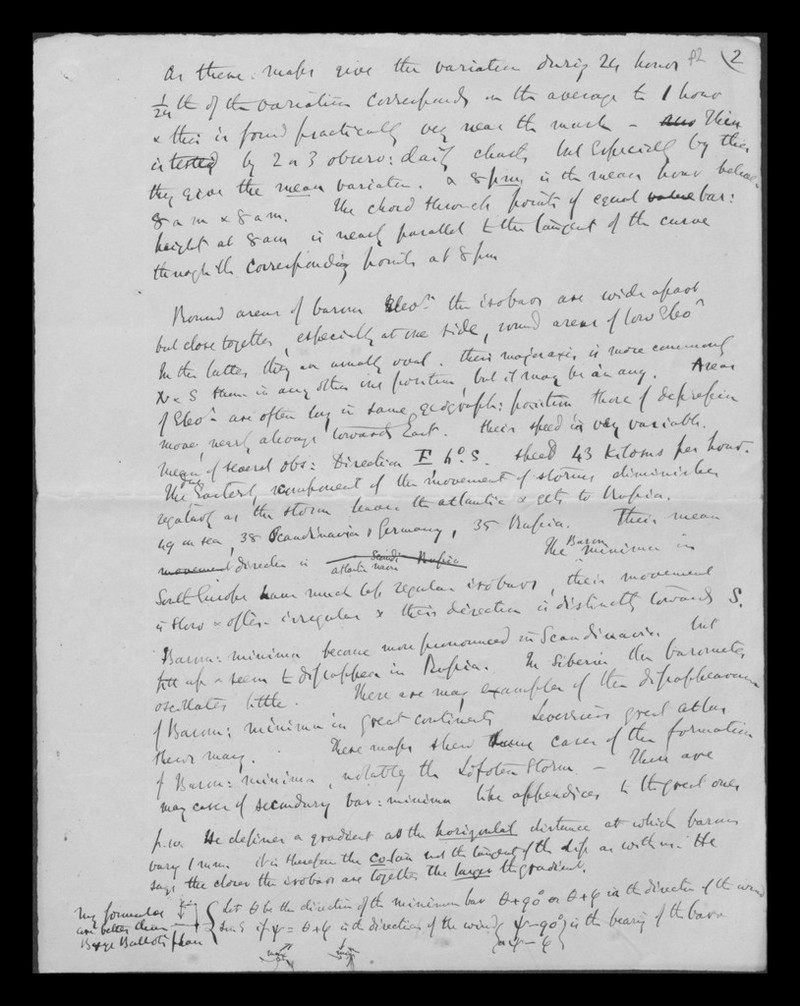 As these maps give the variation during 24 hours p2 2
1/24 th of the variation corresponds on the average to 1 hour
& this is found practically very near the mark – This
is tested by 2 or 3 observ: daily charts but Especially by this
they give the mean variation. & 8 pm is the mean hour between
8 am & 8 am. The chord through points of equal value bar:
height at 8 am is nearly parallel to the tangent of the curve
through the corresponding points at 8 pm
Round areas of barom Elevn the isobars are wide apart
but close together, especially at one side, round areas of low Elevn
In the latter they are usually oval. their major axis is more commonly
N & S than in any other one position, but it may be in any. Areas
of Elevn are often long in same geograph: position those of depression
move, nearly always towards East. their speed is very variable.
mean of several obs: Direction E 6° S. speed 43 Kiloms per hour.
The Easterly component of the movement of storms diminishes
regularly as the storm leaves the atlantic & gets to Russia.
49 on sea, 38 Scandinavia & Germany, 35 Russia. Their mean
movement direction is atlantic Scandinavia Russia The Barom minima in
South Europe have much less regular isobars, their movement
is slow & often irregular & their direction is distinctly towards S.
Barom: minima become more pronounced in Scandinavia but
fill up & seem to disappear in Russia. In Siberia the barometer
oscillates little. There are many examples of the disappearance
of Barom: minima in great continents Leverrier's great atlas
shews many. These maps shew some cases of the formation
of Barom: minima, notably the Lofoten Storm. – There are
many cases of secondary bar: minima like appendices to the great ones
p.10. He defines a gradient as the horizontal distance at which barom
vary 1 mm. it is therefore the cotan not the tangent of the slip as with us. He
says the closer the isobars are together the larger the gradient.
my formulae
are better than
Buys Ballot's plan
Let θ be the direction of the minimum bar θ+90° or θ+φ is the direction of the wind
if ψ = θ+φ is the direction of the wind ψ–90° is the bearing of the bar
or ψ – φ